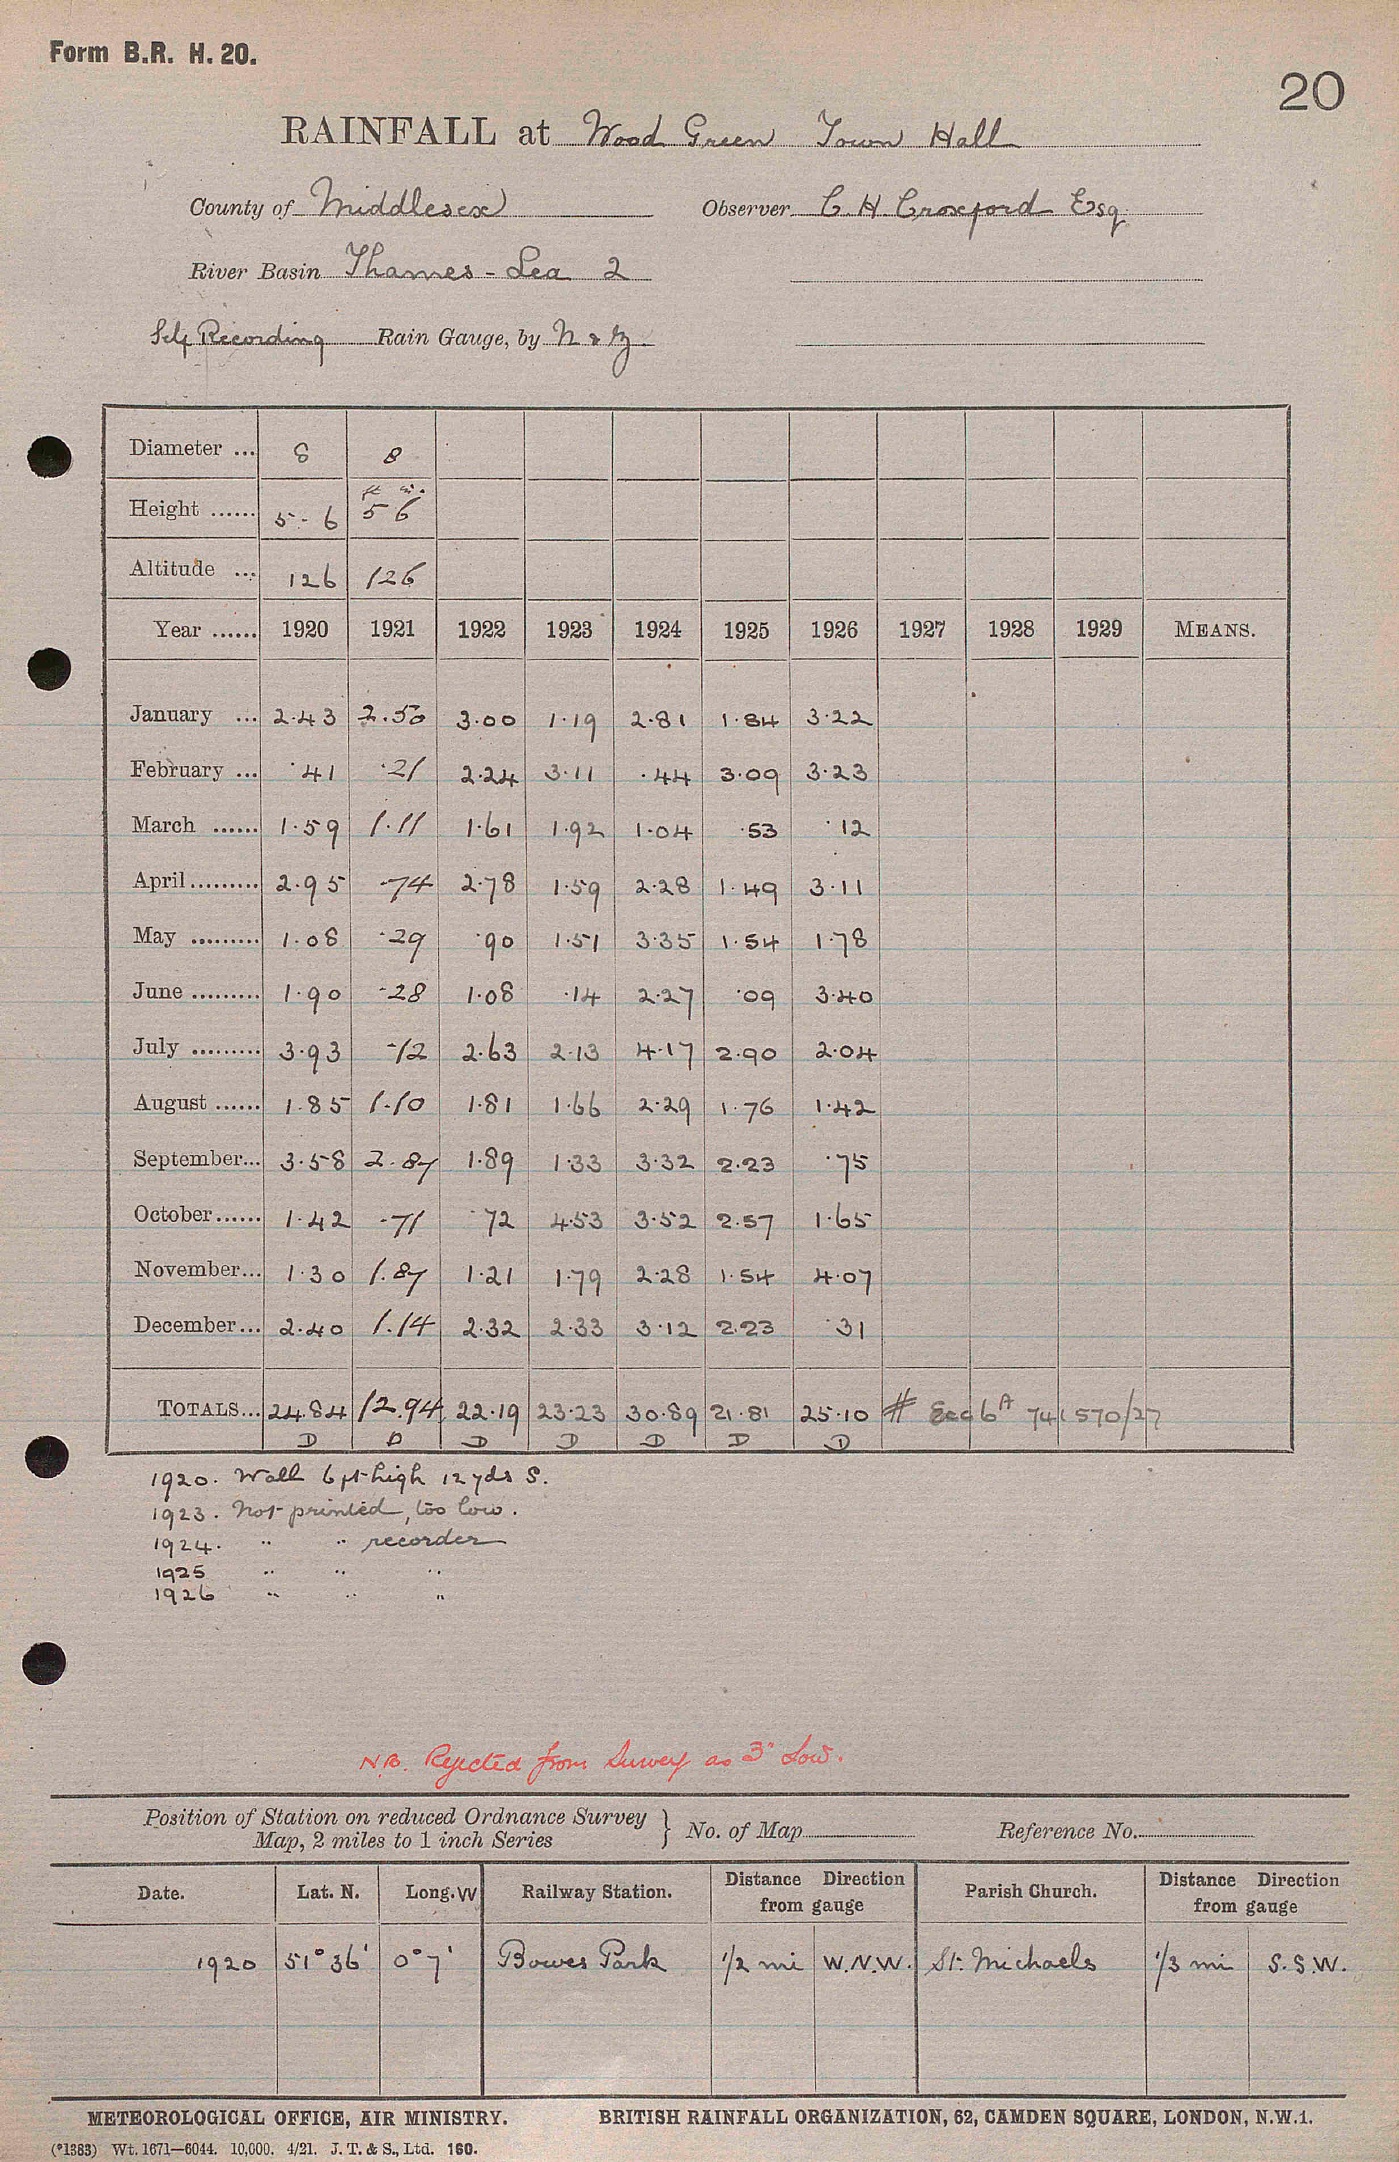 Form B.R. H. 20.
20
RAINFALL at Wood Green Town Hall
County of Middlesex Observer C. H. Croxford Esq
River Basin Thames - Lea 2
Self Recording Rain Gauge, by N & Z.
Diameter ... 8 8
ft in.
Height ...... 5 - 6 5 6
Altitude ... 126 126
Year ...... 1920 1921 1922 1923 1924 1925 1926 1927 1928 1929 MEANS.
January ... 2.43 2.50 3.00 1.19 2.81 1.84 3.22
February ... .41 .21 2.24 3.11 .44 3.09 3.23
March ...... 1.59 1.11 1.61 1.92 1.04 .53 .12
April ......... 2.95 .74 2.78 1.59 2.28 1.49 3.11
May ......... 1.08 .29 .90 1.51 3.35 1.54 1.78
June ......... 1.90 .28 1.08 .14 2.27 .09 3.40
July ......... 3.93 .12 2.63 2.13 4.17 2.90 2.04
August ...... 1.85 1.10 1.81 1.66 2.29 1.76 1.42
September... 3.58 2.87 1.89 1.33 3.32 2.23 .75
October...... 1.42 .71 .72 4.53 3.52 2.57 1.65
November... 1.30 1.87 1.21 1.79 2.28 1.54 4.07
December... 2.40 1.14 2.32 2.33 3.12 2.23 .31
TOTALS... 24.84 12.94 22.19 23.23 30.89 21.81 25.10 # 6A 741570/27
D D D D D D D
1920. Wall 6 ft high 12 yds S.
1923. Not printed, too low.
1924. " " recorder
1925 " " "
1926 " " "
N.B. Rejected from Survey as 3" Low.
Position of Station on reduced Ordnance Survey
Map, 2 miles to 1 inch Series } No. of Map Reference No.
Date. Lat. N. Long. W Railway Station. Distance Direction from gauge Parish Church. Distance Direction from gauge
1920 51° 36' 0° 7' Bowes Park 1/2 mi W.N.W. St. Michaels 1/3 mi S.S.W.
METEOROLOGICAL OFFICE, AIR MINISTRY. BRITISH RAINFALL ORGANIZATION, 62, CAMDEN SQUARE, LONDON, N.W.1.
(*1383) Wt. 1671—6044. 10,000. 4/21. J. T. & S., Ltd. 160.